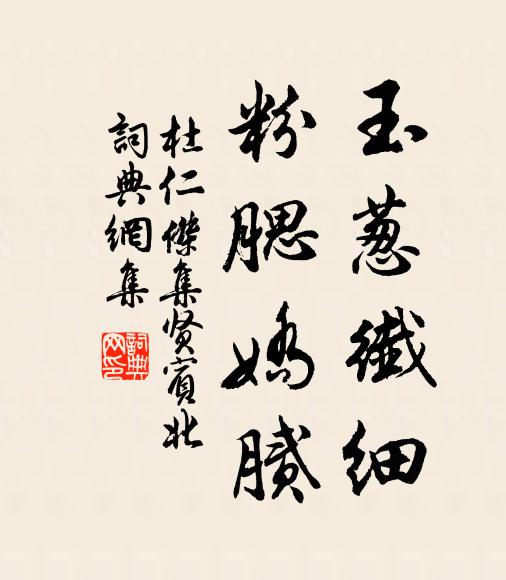 玉葱纖细
粉腮嬌膩
杜仁傑集贤賓北
詞典網集
詞典网印